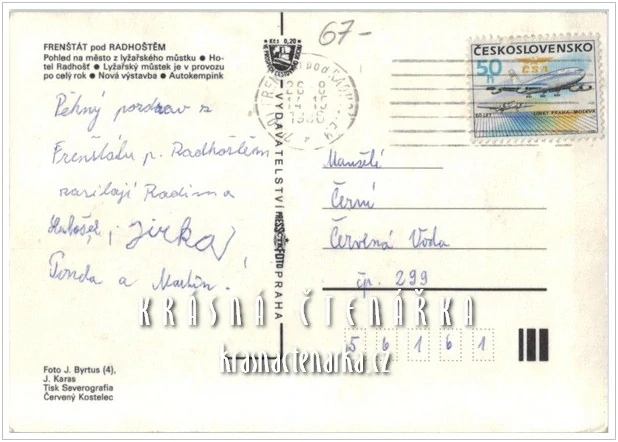 FRENŠTÁT pod RADHOŠTĚM
Pohled na město z lyžařského můstku ● Ho-
tel Radhošť ● Lyžařský můstek je v provozu
po celý rok ● Nová výstavba ● Autokempink
Pěkný pozdrav z
Frenštátu p. Radhoštěm
zasílají Radim a
Luboš, Jirka,
Tonda a Martin!
Foto J. Byrtus (4),
J. Karas
Tisk Severografia
Červený Kostelec
Kčs 0,20
VYDAVATELSTVÍ PRESSFOTO PRAHA
67-
ČESKOSLOVENSKO
50
ČSA
50 LET LINKY PRAHA-MOSKVA
Manželé
Černí
Červená Voda
čp. 299
5 6 1 6 1
KRÁSNÁ ČTENÁŘKA
krasnactenarka.cz